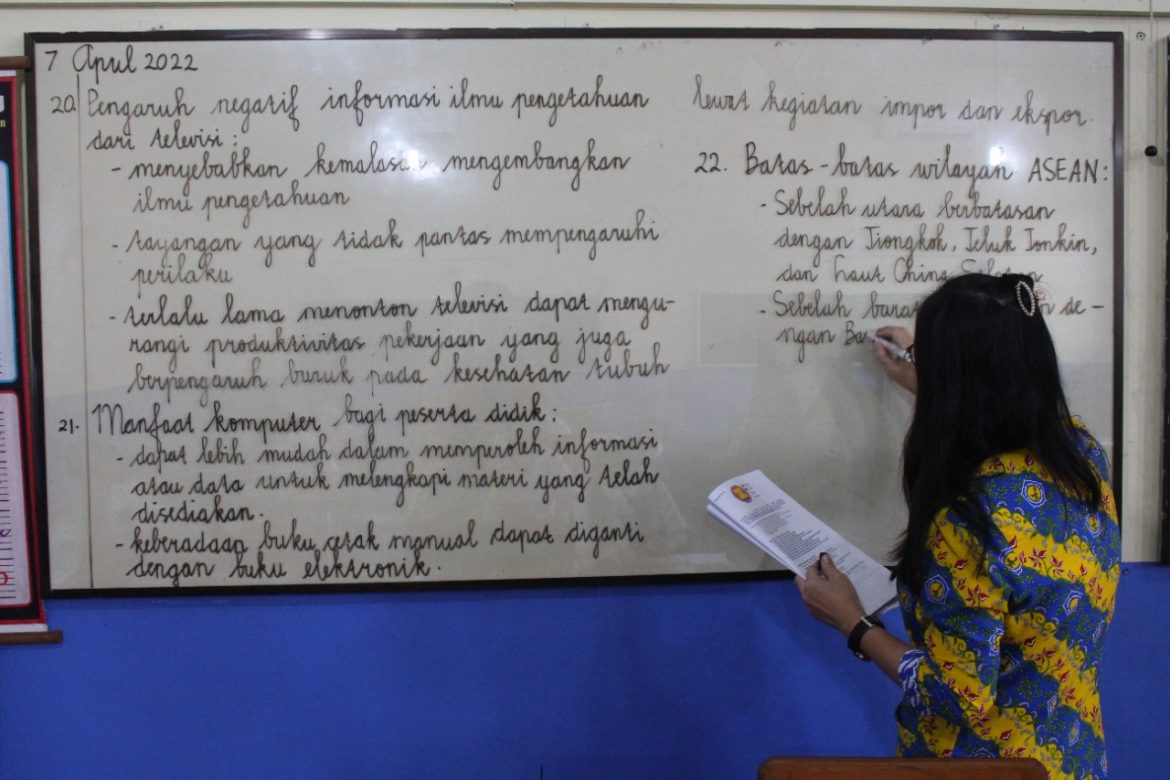 7 April 2022
20. Pengaruh negatif informasi ilmu pengetahuan
dari televisi :
- menyebabkan kemalasan mengembangkan
ilmu pengetahuan
- tayangan yang tidak pantas mempengaruhi
perilaku
- terlalu lama menonton televisi dapat mengu-
rangi produktivitas pekerjaan yang juga
berpengaruh buruk pada kesehatan tubuh
21. Manfaat komputer bagi peserta didik :
- dapat lebih mudah dalam memperoleh informasi
atau data untuk melengkapi materi yang telah
disediakan.
- keberadaan buku cetak manual dapat diganti
dengan buku elektronik.
lewat kegiatan impor dan ekspor.
22. Batas-batas wilayah ASEAN :
- Sebelah utara berbatasan
dengan Tiongkok, Teluk Tonkin,
dan Laut China Selatan
- Sebelah barat de-
ngan